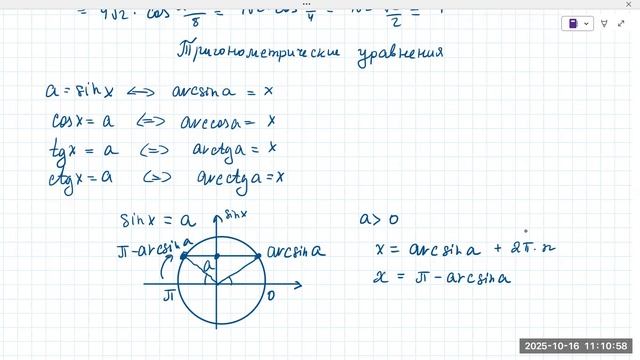 Тригонометрические уравнения
a = sinx <=> arcsina = x
cosx = a <=> arccosa = x
tgx = a <=> arctga = x
ctgx = a <=> arcctga = x
sinx = a
sinx
a > 0
π - arcsina
a
arcsina
x = arcsina + 2π·n
π
0
x = π - arcsina
2025-10-16 11:10:58